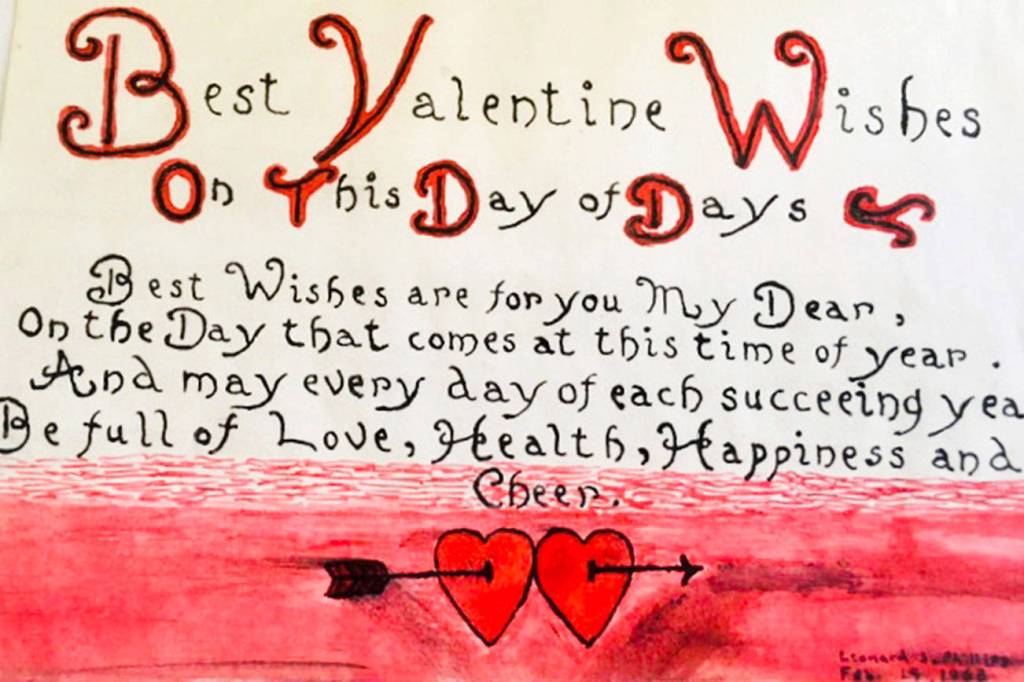 Best Valentine Wishes
On This Day of Days
Best Wishes are for you My Dear,
On the Day that comes at this time of year.
And may every day of each succeeing yea
Be full of Love, Health, Happiness and
Cheer.
Leonard J.
Feb. 14, 1963